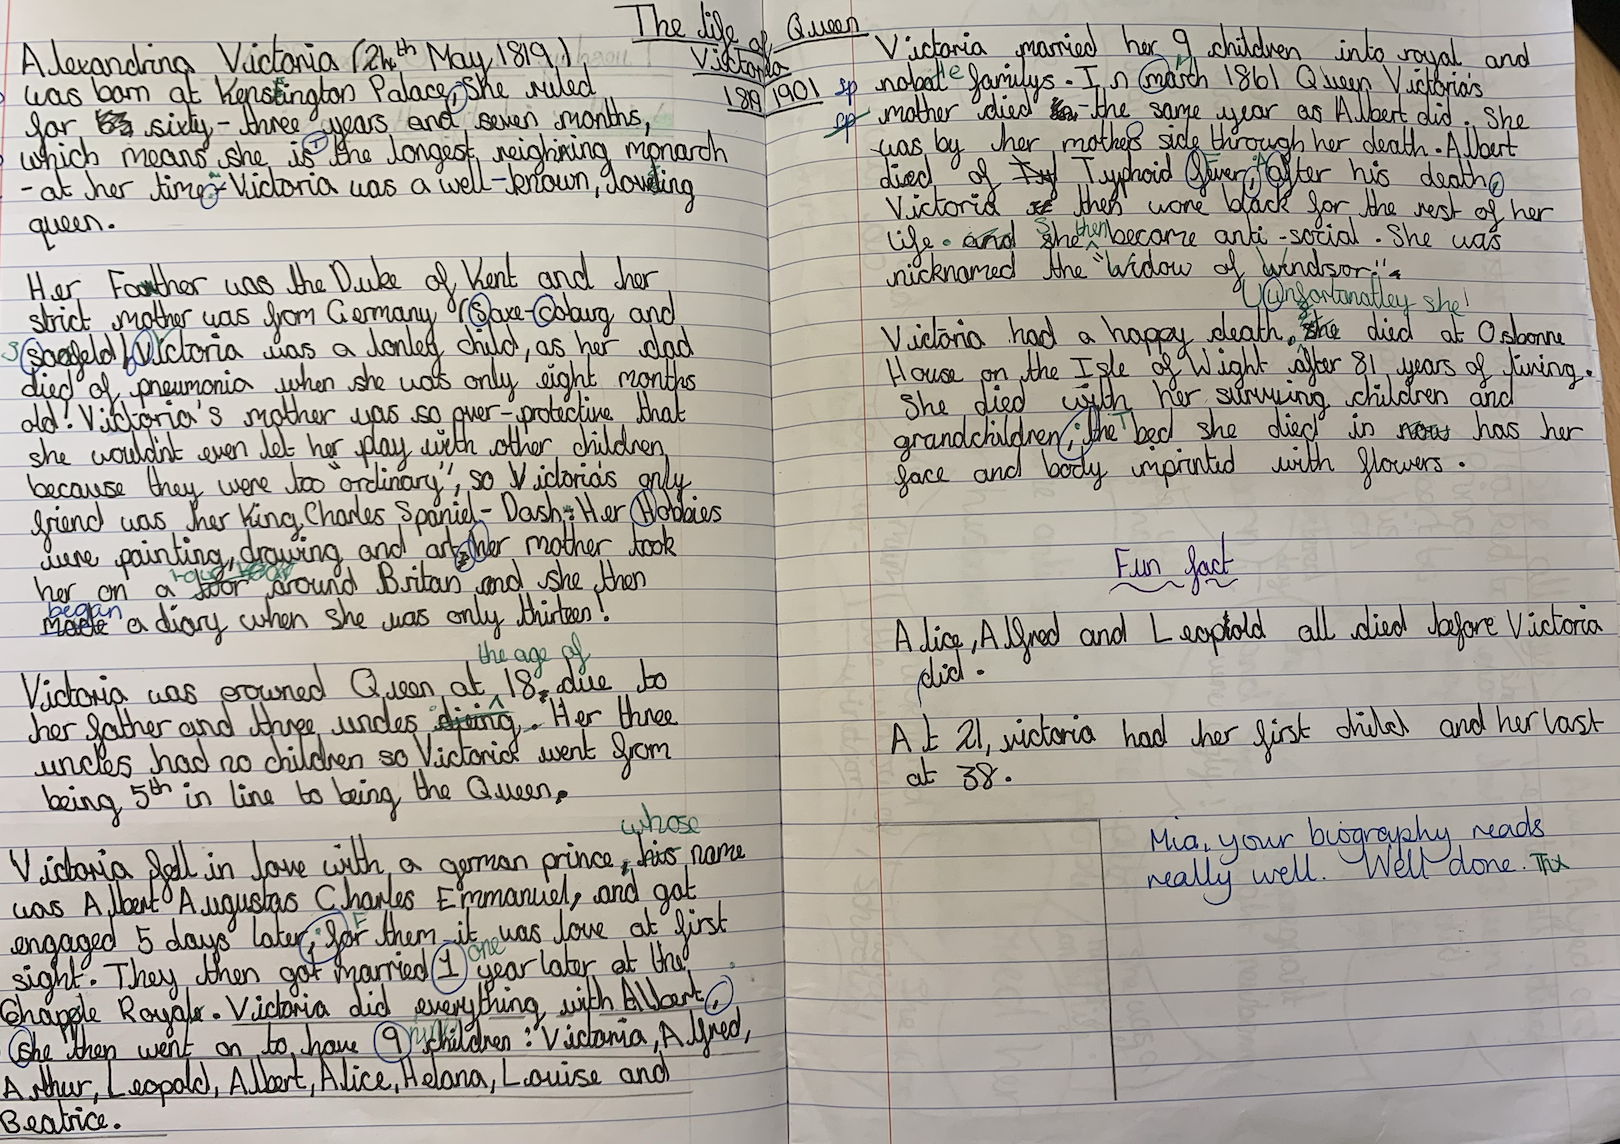 The life of Queen
Victoria
1819 1901
Alexandrina Victoria (24th May 1819)
was born at Kensington Palace, She ruled
for sixty-three years and seven months,
which means she is the longest reighning monarch
-at her time- Victoria was a well-known, loving
queen.
Her Father was the Duke of Kent and her
strict mother was from Germany (Saxe-Coburg and
Saafeld), Victoria was a lonley child, as her dad
died of pneumonia when she was only eight months
old! Victoria's mother was so over-protective that
she wouldn't even let her play with other children
because they were too "ordinary", so Victoria's only
friend was her King Charles Spaniel- Dash. Her Hobbies
were painting, drawing and art, her mother took
her on a tour around Britan and she then
began
made a diary when she was only thirteen!
the age of
Victoria was crowned Queen at 18, due to
her father and three uncles dieing. Her three
uncles had no children so Victoria went from
being 5th in line to being the Queen.
whose
Victoria fell in love with a german prince, his name
was Albert Augustas Charles Emmanuel, and got
engaged 5 days later; for them it was love at first
one
sight. They then got married 1 year later at the
Chapple Royale. Victoria did everything with Albert,
She then went on to have 9 children: Victoria, Alfred,
Arthur, Leopold, Albert, Alice, Helana, Louise and
Beatrice.
Victoria married her 9 children into royal and
sp noble familys. In march 1861 Queen Victoria's
sp mother died the same year as Albert did. She
was by her mothers side through her death. Albert
died of Typhoid fever, After his death,
Victoria then wore black for the rest of her
life. and She then became anti-social. She was
nicknamed the "Widow of Windsor".
Unfortanatley she!
Victoria had a happy death, she died at Osborne
House on the Isle of Wight after 81 years of living.
She died with her surviving children and
grandchildren; The bed she died in now has her
face and body imprinted with flowers.
Fun fact
Alice, Alfred and Leopold all died before Victoria
did.
At 21, victoria had her first child and her last
at 38.
Mia, your biography reads
really well. Well done. Thx